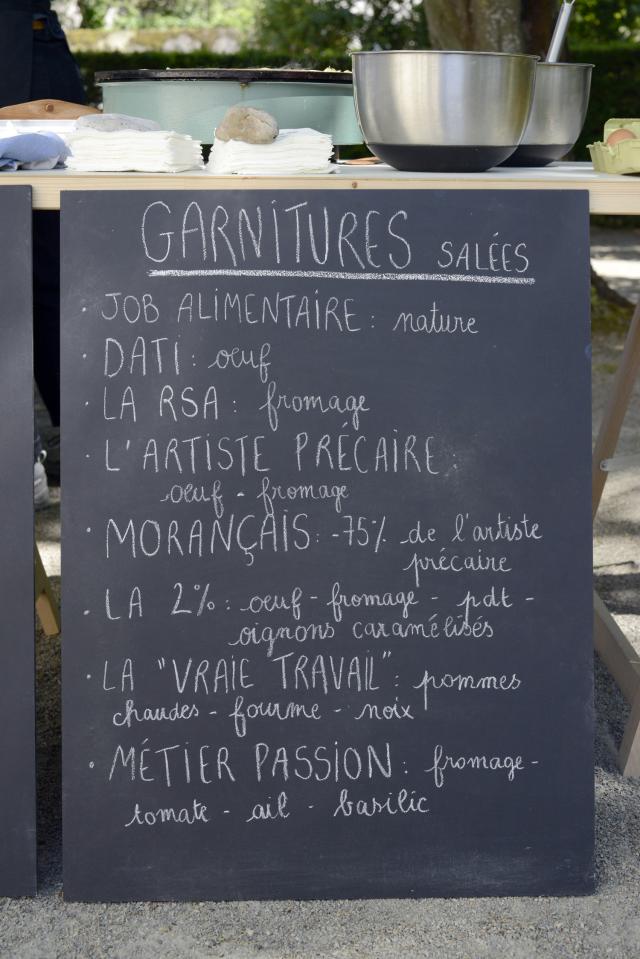 GARNITURES SALÉES
· JOB ALIMENTAIRE : nature
· DATI : oeuf
· LA RSA : fromage
· L'ARTISTE PRÉCAIRE :
oeuf - fromage
· MORANÇAIS : -75% de l'artiste
précaire
· LA 2% : oeuf - fromage - pdt -
oignons caramélisés
· LA "VRAIE TRAVAIL" : pommes
chaudes - fourme - noix
· MÉTIER PASSION : fromage -
tomate - ail - basilic